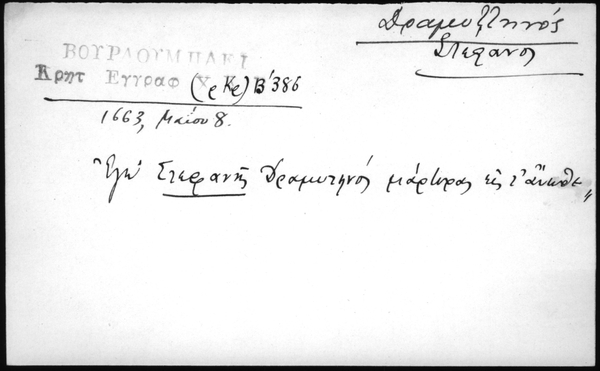 Δραμυττηνός
Στέφανος
ΒΟΥΡΔΟΥΜΠΑΚΙ
Κρητ Εγγραφ Χ Κ (Χρ Κρ) Β΄386
1663, Μαΐου 8.
"Ἐγὼ Στεφανῆς Δραμυτηνός μάρτυρας εἰς τ' ἄνωθε"